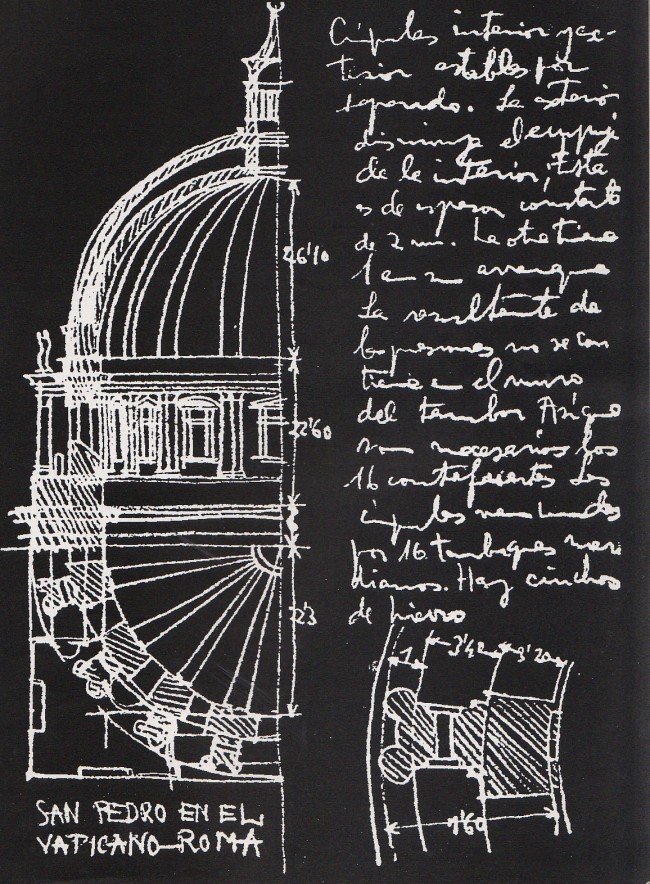 Cúpulas interior y ex-
terior estables por
separado. La exterior
disminuye el empuje
de la interior; Esta
es de espesor constante
de 2 m. La otra tiene
1 en su arranque
La resultante de
las presiones no se con
tiene en el muro
del tambor Así que
son necesarios los
16 contrafuertes Las
cúpulas van unidas
por 16 tabiques meri
dianos. Hay cinchos
de hierro
26'10
22'60
2'3
1
3'42
3'20
SAN PEDRO EN EL
VATICANO-ROMA